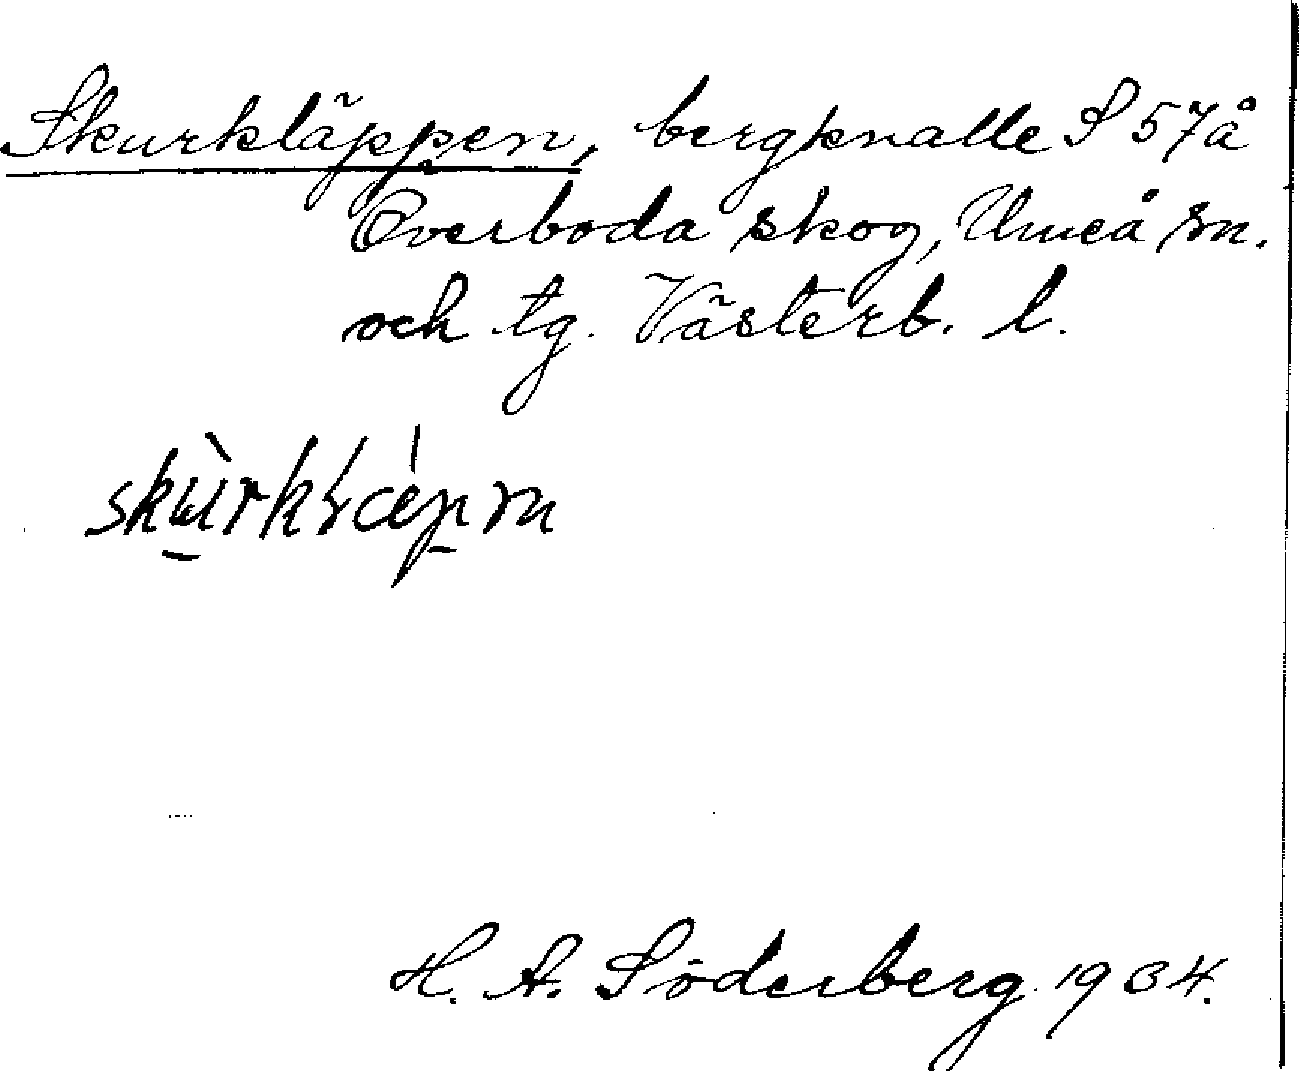 Skurkläppen, bergknalle S 57 å
Överboda skog, Umeå sn.
och tg. Västerb. l.
H. A. Söderberg 1934.